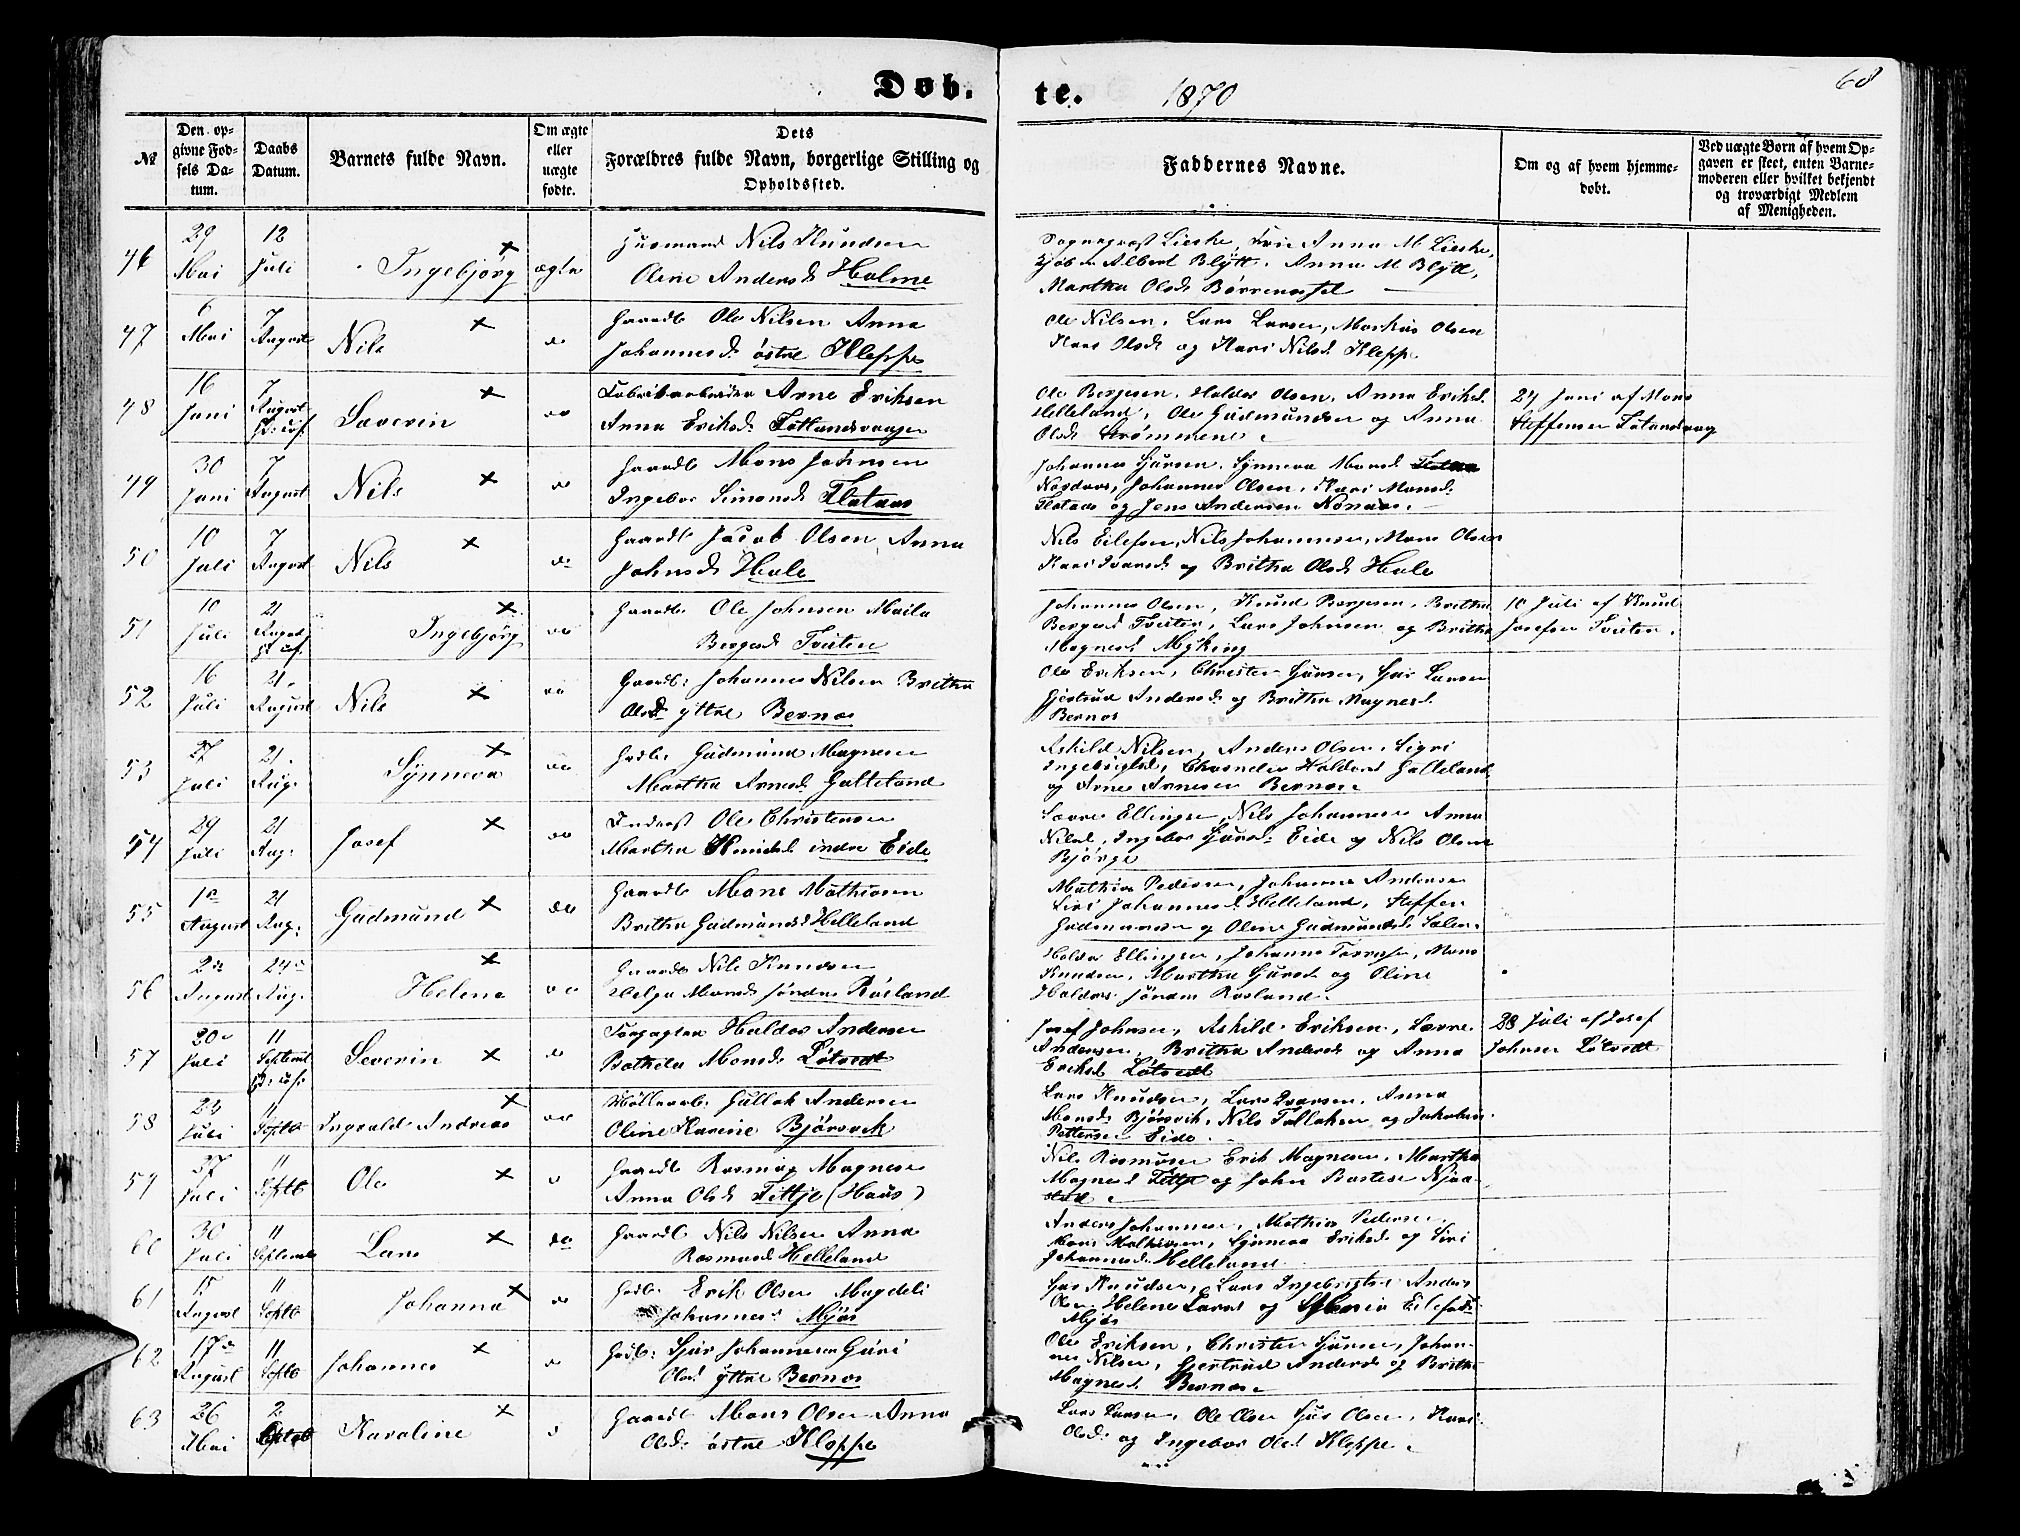 Døb-
te.
1870
68
№
Den op-
givne Fød-
sels Da-
tum.
Daabs
Datum.
Barnets fulde Navn.
Om ægte
eller
uægte
fødte.
Dets
Forældres fulde Navn, borgerlige Stilling og
Opholdssted.
Faddernes Navne.
Om og af hvem hjemme-
døbt.
Ved uægte Børn af hvem Op-
gaven er skeet, enten Barne-
moderen eller hvilket bekjendt
og troværdigt Medlem
af Menigheden.
46
29 Mai
12 Juli
Ingebjörg
ægte
Husmand Nils Knudsen
Oline Andersd. Holme
Anna M
Albert Blytt. Anna M Blytt,
Martha Olsd.
47
6 Mai
7 August
Nils
Gaardb Ole Nilsen Anna
Johannesd. östre Kleppe
Ole Nilsen, Lars Larsen, Markus Olsen
Kari Olsd. og Kari Nilsd. Kleppe
48
16 Juni
7 August
Severin
Fabrikarbeider Arne Eriksen
Anna Eriksd. Fotlandsvaage
Ole Bergesen, Haldor Olsen, Anna Eriksd.
Helleland, Ole Gudmundsen og Anna
Olsd. Strømmene.
24 Juni af Mons
Steffensen Fotlandsvaag
49
30 Juni
7 August
Nils
Gaardb Mons Johnsen
Ingebor Simonsd. Flataas
Johannes Gjursen, Synneva Monsd.
Johannes Olsen, Kari Monsd.
Flataas og Jens Andersen
50
10 Juli
7 August
Nils
do
Gaardb Jacob Olsen, Anna
Johnsd. Hole
Nils Eilefsen, Nils Johannesen, Mons Olsen
Kari Ivarsd. og Britha Olsd. Hole
51
10 Juli
21 August
Ingebjörg
Gaardb. Ole Johnsen Maila
Bergesd. Tveiten
Johannes Olsen, Knud Bergesen, Britha
Bergesd. Tveiten, Lars Johnsen og Britha
Magnesd. Myking
10 Juli af Knud
Josefsen Tveiten.
52
16 Juli
21 August
Nils
Gaardb: Johannes Nilsen Britha
Olsd. yttre Bernes
Ole Eriksen, Christen Gjursen, Gjur Larsen
Gjertrud Andersd. og Britha Magnesd.
Bernes
53
27 Juli
21 Aug.
Synneva
Gdb: Gudmund Magnesen
Martha Arnesd. Galteland
Askild Nilsen, Anders Olsen, Sigri
Ingebrigtsd.
og Arne Arnesen Bernes
54
29 Juli
21 Aug:
Josef
Inderst Ole Christensen
Martha Knudsd. indre Eide
Sævre Ellingsen, Nils Johannesen Anna
Nilsd., Ingebor Gjursd. Eide og Nils Olsen
Bjørge
55
1ste August
21 Aug:
Gudmund
do
Gaardb Mons Mathiasen
Britha Gudmundsd. Helleland
Mathias Pedersen, Johannes Andersen
Siri Johannesd. Helleland, Steffen
Gudmundsen og Oline Gudmundsd.
56
2den August
24de Aug.
Helene
Gaardb Nils Knudsen
Helga Monsd. søndre Røsland
Haldor Ellingsen, Johannes Mons
Knudsen, Martha Gjursd. og Oline
Haldors. søndre Rosland.
57
20de Juli
11 Septembr
Severin
Haldor Andersen
Bothilda Monsd. Løtvedt
Josef Johnsen, Askild Eriksen, Sævre
Andersen, Britha Andersd. og Anna
Eriksd. Løtvedt
28 Juli af Josef
Johnsen Løtvedt
58
23 Juli
11 Septb
Ingvald Andreas
Møllearb. Gullak Andersen
Oline Karine Bjørsvik
Lars Knudsen, Lars Ivarsen, Anna
Monsd. Bjørsvik, Nils Tollaksen og Jakobine
Pettersen Eide.
59
27 Juli
11 Septb
Ole
Gaardb Rasmus Magnesen
Anna Olsd. Tittje (Haus)
Nils Rasmusen Erik Magnesen, Martha
Magnesd. Tittje og John
60
30 Juli
11 Septemb
Lars
do
Gaardb Nils Nilsen Anna
Rasmusd. Helleland
Anders Johannesen, Mathias Pedersen
Mons Mathiasen, Synneva Eriksd. og Siri
Johannesd. Helleland
61
15 August
11 Septb
Johanna
Gdb. Erik Olsen Magdeli
Johannesd. Mjøs
Gjur Knudsen, Lars Ingebrigtsd. Anders
Olsen, Helene Larsd. og Eilefsd.
Mjøs
62
17de August
11 Septb
Johannes
Gdb: Gjur Johannesen Guri
Olsd. yttre Bernes
Ole Eriksen, Christen Gjursen, Johan-
nes Nilsen, Gjertrud Andersd. og Britha
Magnesd. Bernes
63
26 Mai
2 Septb
Karoline
Gaardb Mons Olsen Anna
Olsd. østre Kleppe
Lars Larsen, Ole Olsen Gjur Olsen, Kari
Olsd. og Ingebor Olsd. Kleppe.